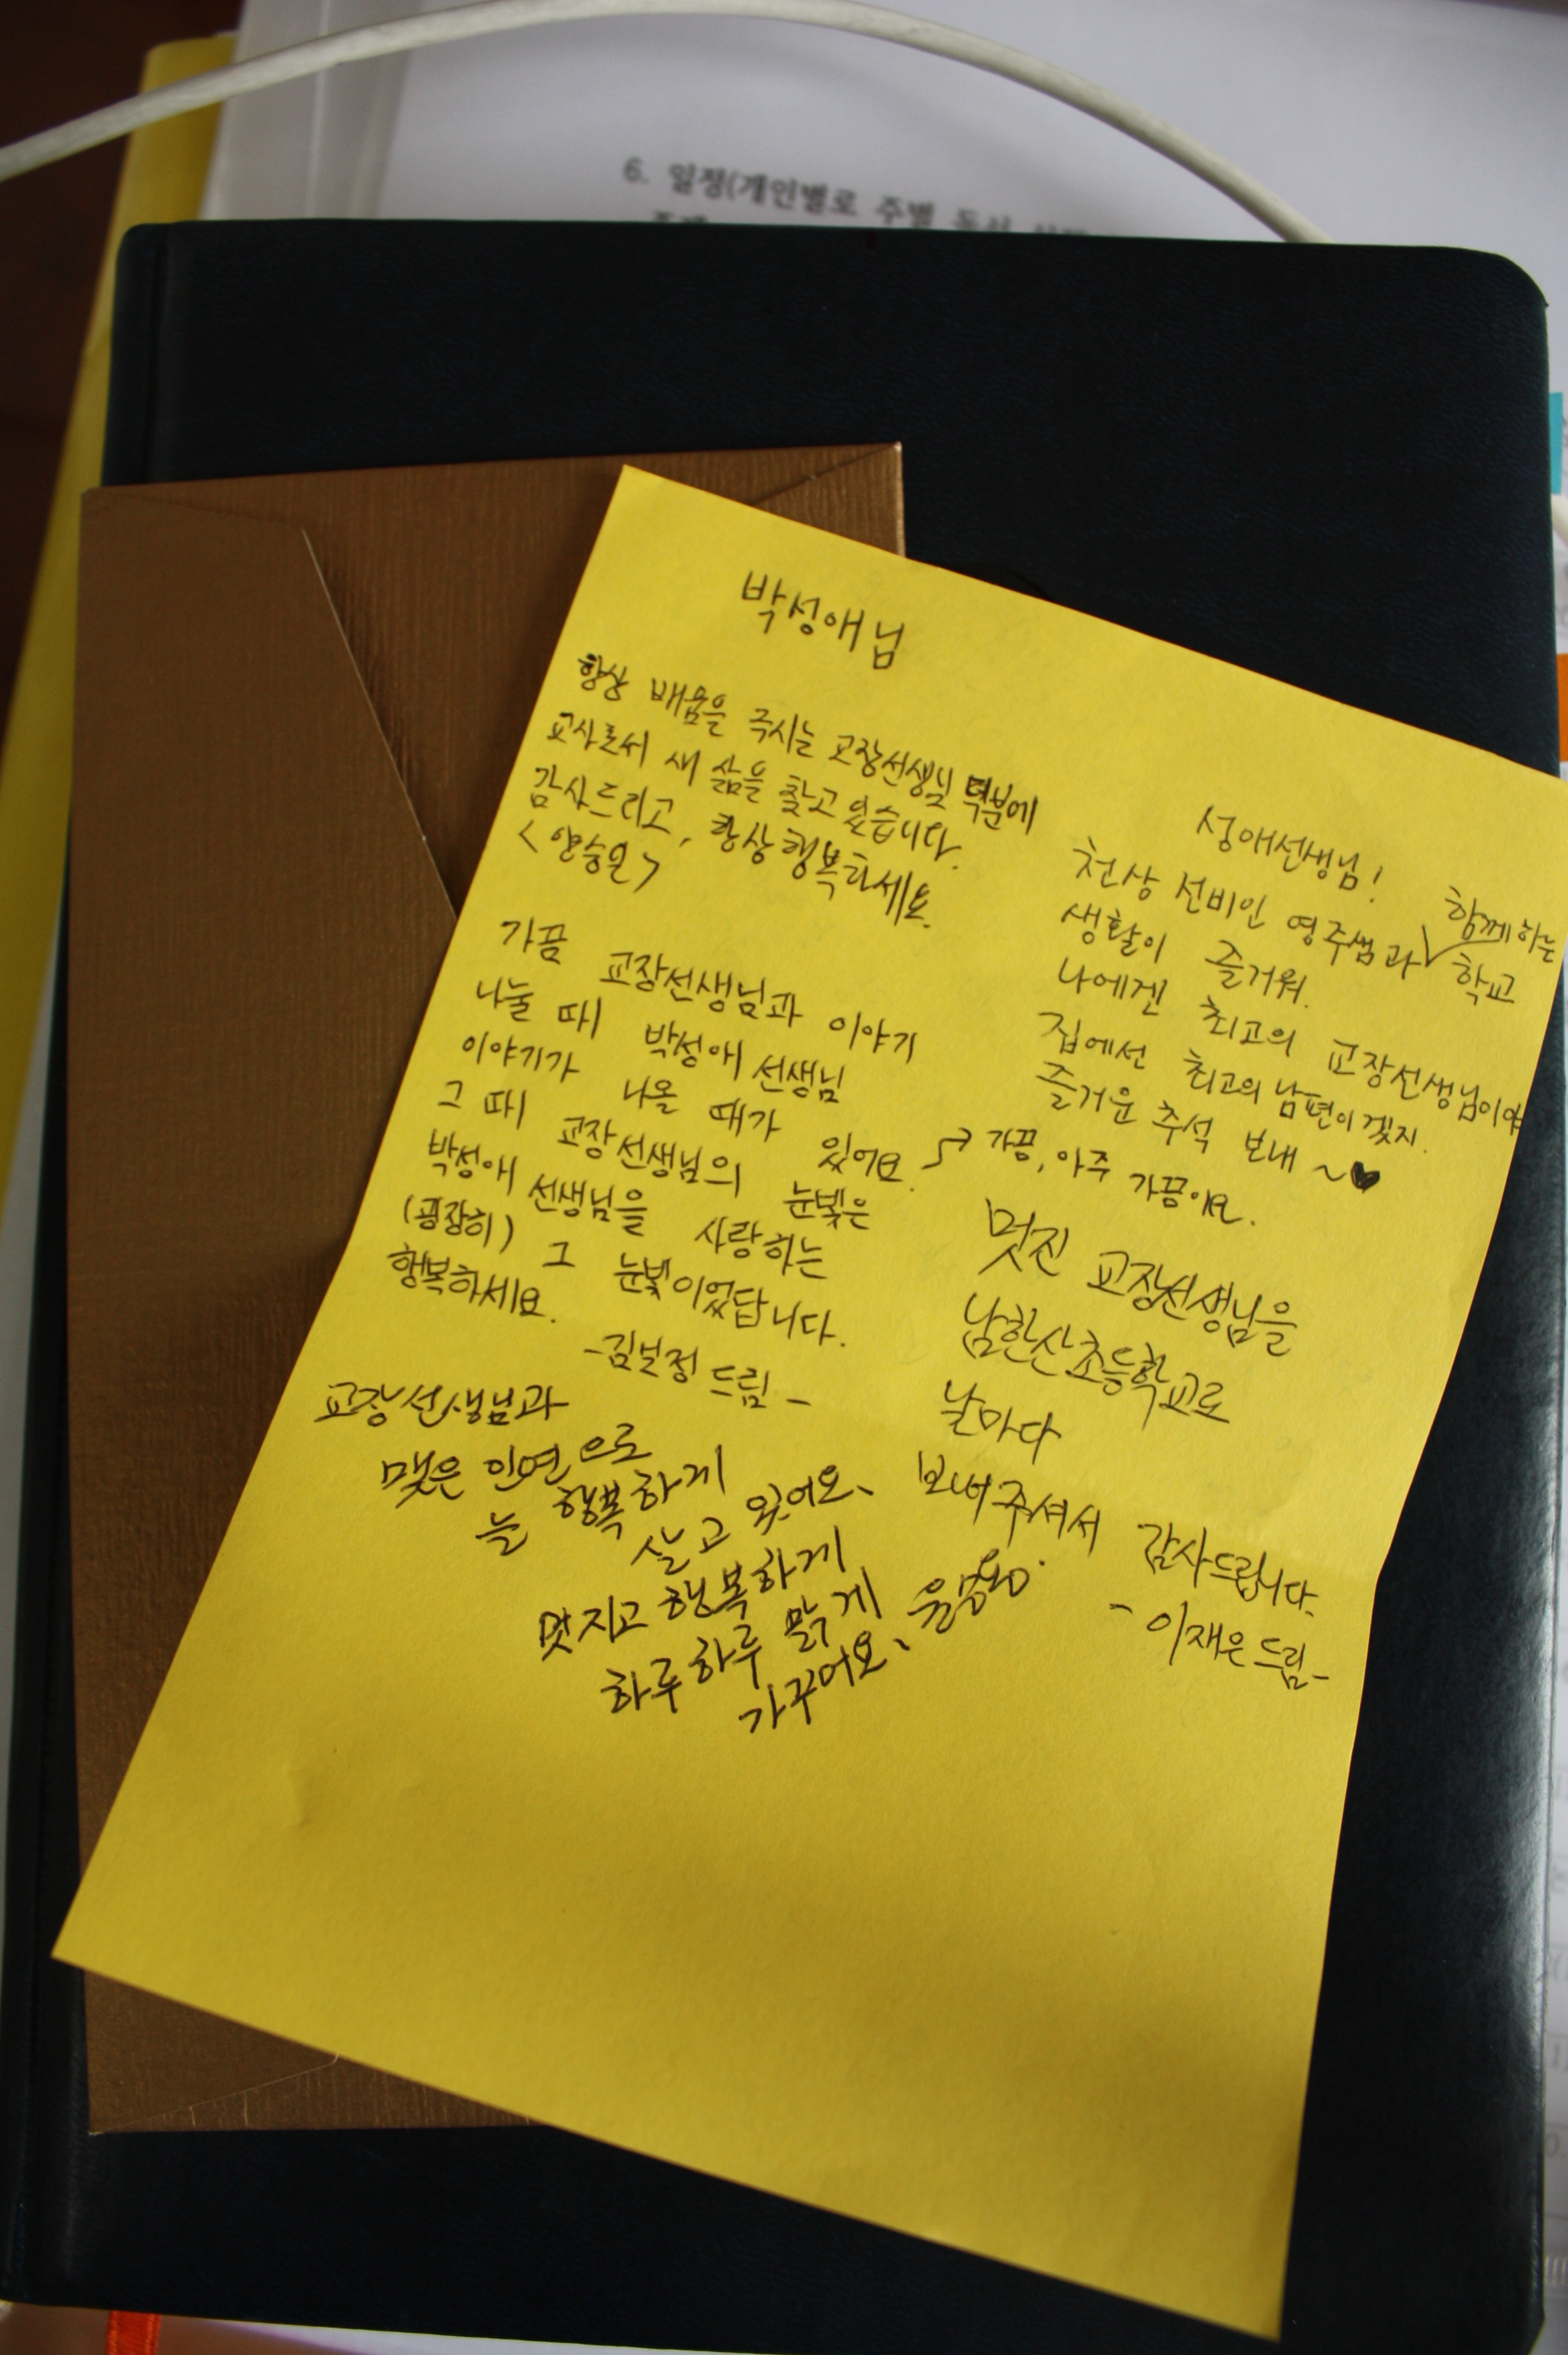 6. 일정(개인별로 주별 독서
박성애님
항상 배움을 주시는 교장선생님 덕분에
교사로써 새 삶을 찾고 있습니다.
감사드리고, 항상 행복하세요.
가끔 교장선생님과 이야기
나눌 때 박성애 선생님
이야기가 나올 때가 있어요.
그 때 교장선생님의 눈빛은
박성애 선생님을 사랑하는
(굉장히) 그 눈빛이었답니다.
행복하세요.
-김보정 드림-
교장선생님과
맺은 인연으로
늘 행복하게
살고 있어요.
멋지고 행복하게
하루하루 맑게
가꾸어요.
성애선생님!
천상 선비인 영주쌤과 함께하는 학교
생활이 즐거워.
나에겐 최고의 교장선생님이야
집에선 최고의 남편이겠지.
즐거운 추석 보내~♥
→ 가끔, 아주 가끔이요.
멋진 교장선생님을
남한산초등학교로
날마다
보내주셔서 감사드립니다.
- 이재은 드림-